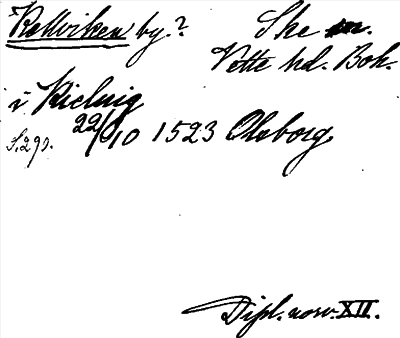 Kellviken by.? Ske sn.
Vette hd. Boh.
i Kieluig
22/10 1523 Oloborg
S. 290.
Dipl. norv. XII.